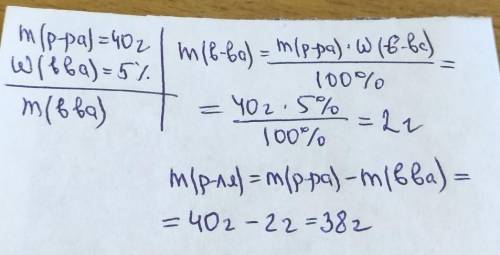 m(р-ра)=40г
W(вва)=5%
m(вва)
m(в-ва)= m(р-ра)·W(в-ва) =
100%
= 40г·5% = 2г
100%
m(р-ля)=m(р-ра)-m(вва)=
=40г-2г=38г